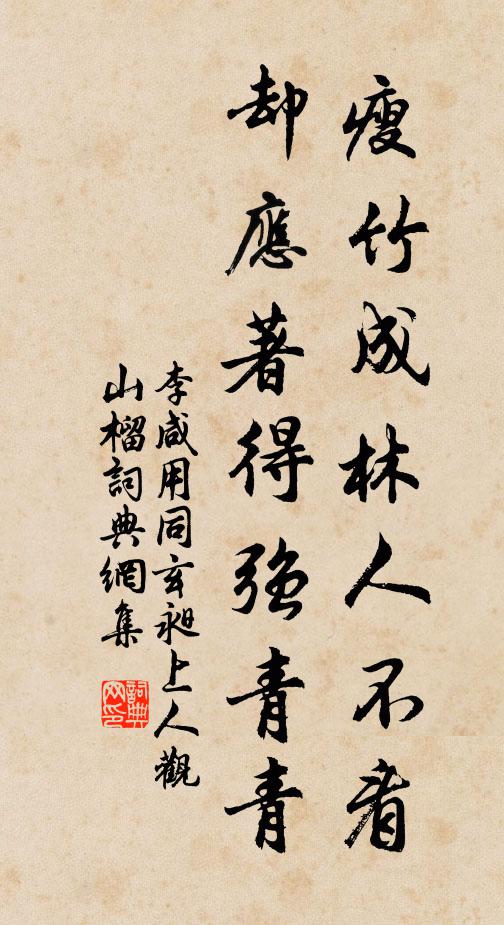 瘦竹成林人不看
却應著得強青青
李咸用同玄昶上人觀
山榴詞典網集
詞典
网印